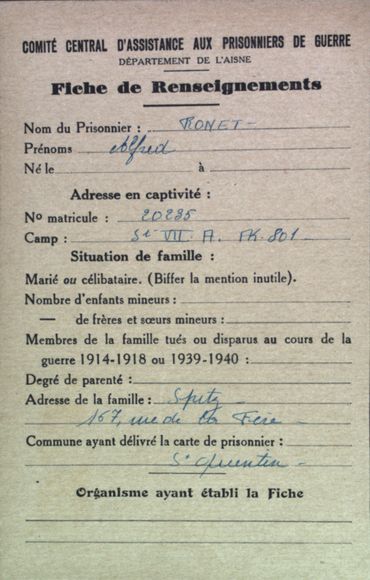 COMITÉ CENTRAL D'ASSISTANCE AUX PRISONNIERS DE GUERRE
DÉPARTEMENT DE L'AISNE
Fiche de Renseignements
Nom du Prisonnier : RONET -
Prénoms Alfred
Né le à
Adresse en captivité :
No matricule : 20235
Camp : St VII. A. TK. 801
Situation de famille :
Marié ou célibataire. (Biffer la mention inutile).
Nombre d'enfants mineurs :
— de frères et sœurs mineurs :
Membres de la famille tués ou disparus au cours de la
guerre 1914-1918 ou 1939-1940 :
Degré de parenté :
Adresse de la famille : Spitz -
167, rue de la Fère -
Commune ayant délivré la carte de prisonnier :
St Quentin -
Organisme ayant établi la Fiche